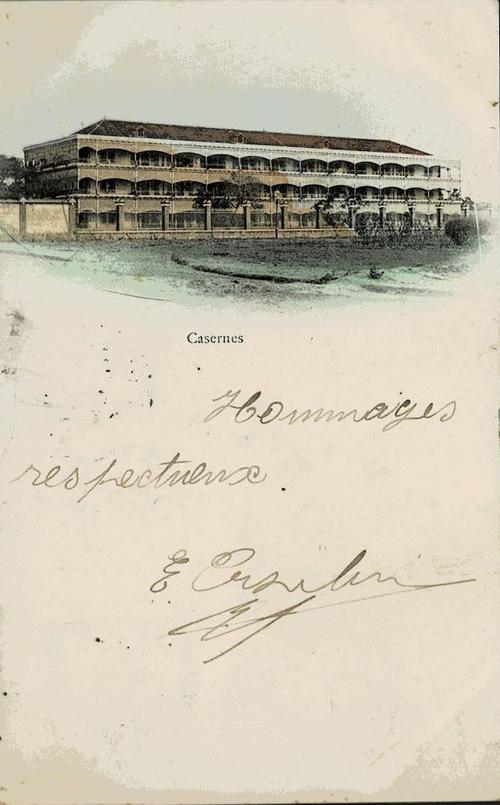 Casernes
Hommages
respectueux.
E